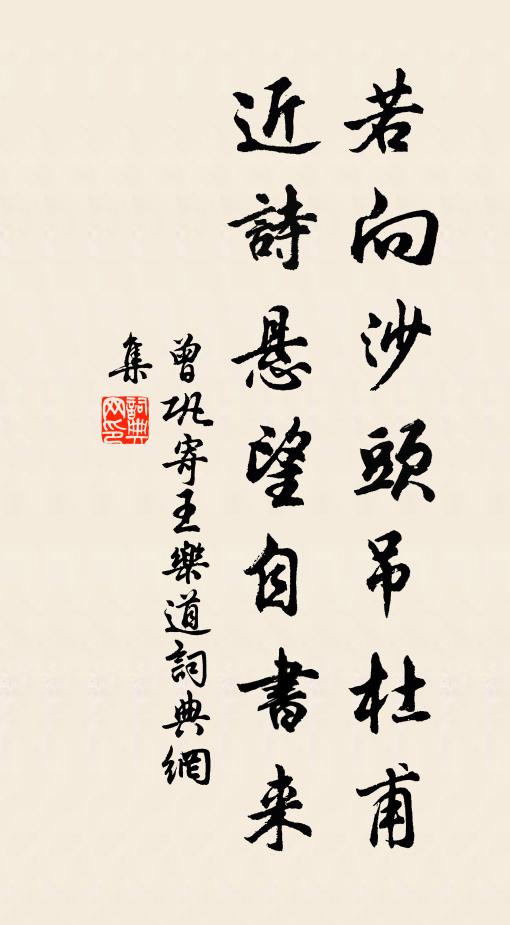 若向沙頭吊杜甫
近詩悬望自書来
曾巩寄王樂道詞典網
集
詞典
网印